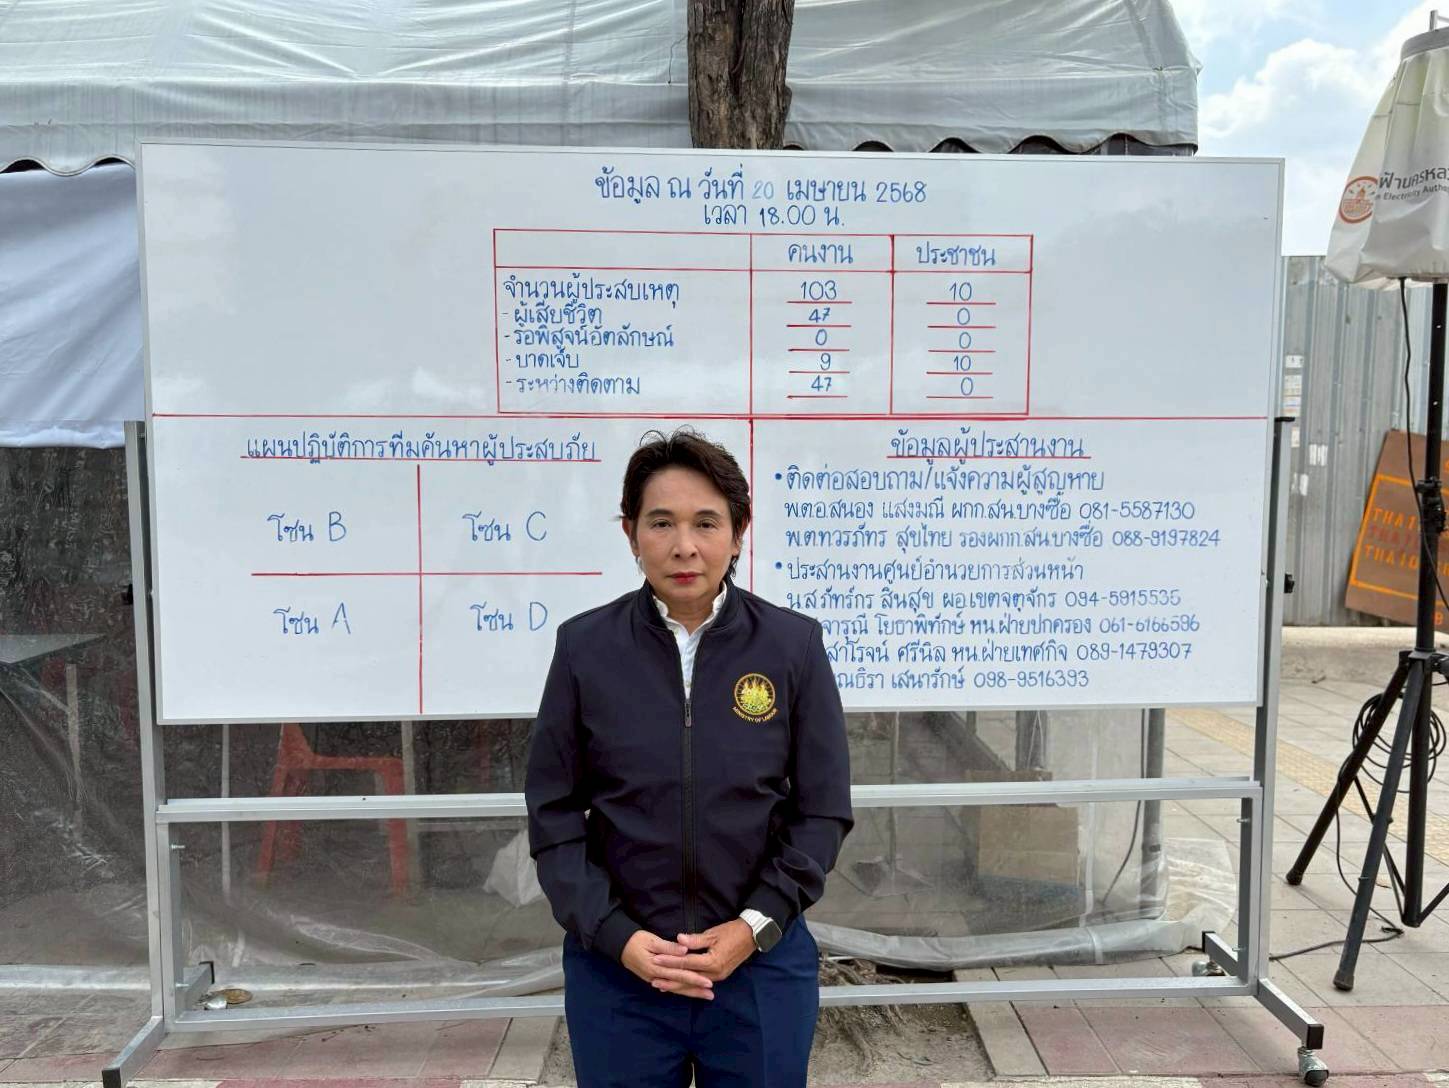 ข้อมูล ณ วันที่ 20 เมษายน 2568
เวลา 18.00 น.
คนงาน ประชาชน
จำนวนผู้ประสบเหตุ 103 10
- ผู้เสียชีวิต 47 0
- รอพิสูจน์อัตลักษณ์ 0 0
- บาดเจ็บ 9 10
- ระหว่างติดตาม 47 0
แผนปฏิบัติการทีมค้นหาผู้ประสบภัย
โซน B โซน C
โซน A โซน D
ข้อมูลผู้ประสานงาน
• ติดต่อสอบถาม/แจ้งความผู้สูญหาย
พ.ต.อ.สนอง แสงมณี ผกก.สน.บางซื่อ 081-5587130
พ.ต.ท.วรภัทร สุขไทย รองผกก.สน.บางซื่อ 088-9197824
• ประสานงานศูนย์อำนวยการส่วนหน้า
น.ส.ภัทร์กร สินสุข ผอ.เขตจตุจักร 094-5915535
จารุณี โยธาพิทักษ์ หน.ฝ่ายปกครอง 061-6166596
สาโรจน์ ศรีนิล หน.ฝ่ายเทศกิจ 089-1479307
ณธิรา เสนารักษ์ 098-9516393
MINISTRY OF LABOUR
ฟ้านครหลว
Electricity Autho